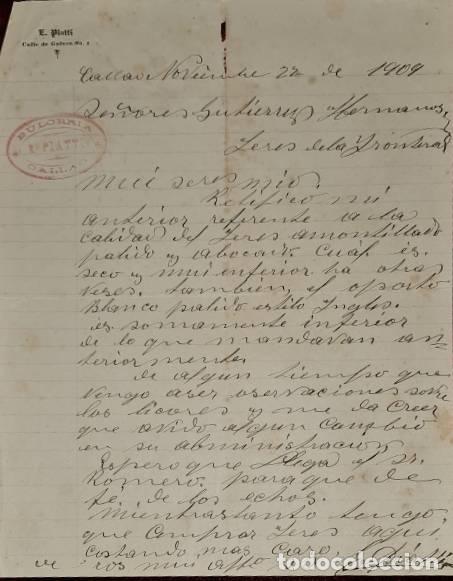 E. Piatti
Calle de Galvez No. 1
Callao Noviembre 22 de 1909
Señores Gutierrez Hermanos
Jeres de la Frontera
BULONRIA
E. PIATTI
CALLAO
Mui seres mio.
Retifico mi
anterior referente a la
calidad del Jeres amontillado
palido y abocado. Cual es
seco y mui inferior ha otra
veses. tambien, el oporto
Blanco palido estilo Ingles.
es somamente inferior
de lo que mandavan an-
teriormente.
de algun tiempo que
vengo aser oservaciones sovre
los licores y me da creer
que avido algun cambio
en su administracion
Espero que llega el sr.
Romero. para que de
fe. de los echos.
Mientrastanto tengo
que comprar Jeres aqui
costando mas caro.
de vos mui affo
todocoleccion